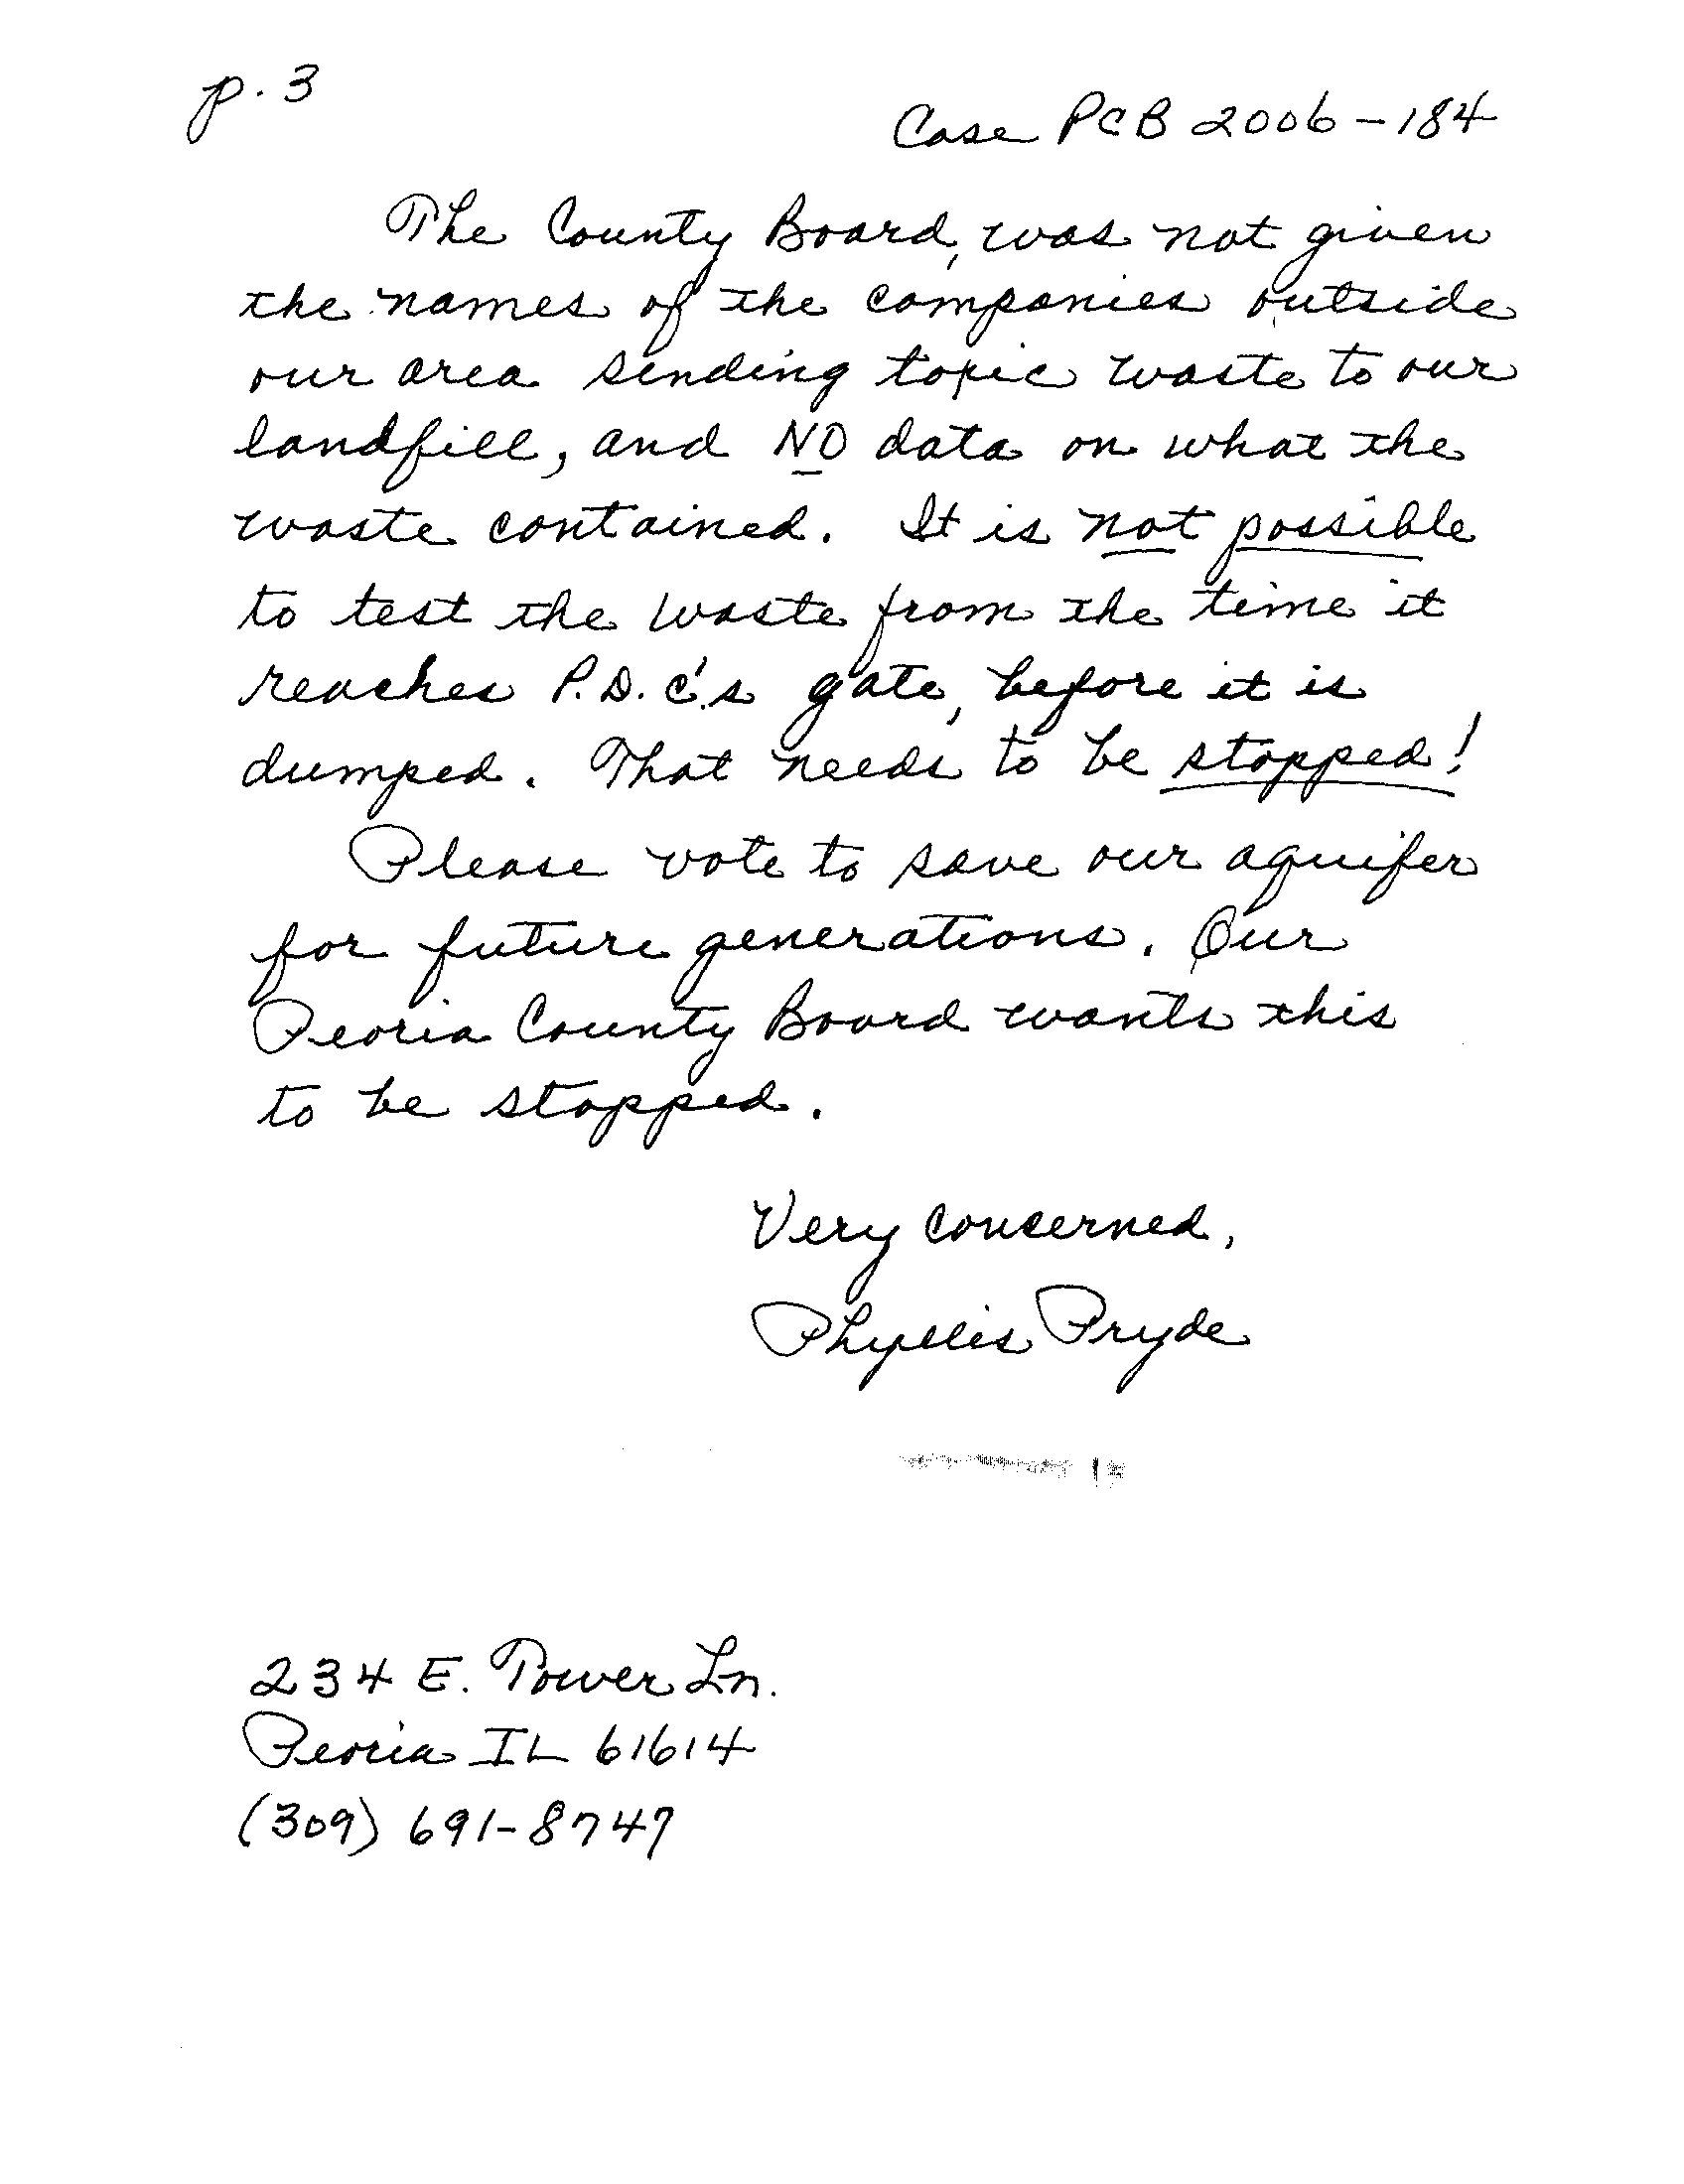 p. 3
Case PCB 2006-184
The County Board, was not given
the names of the companies outside
our area sending toxic waste to our
landfill, and NO data on what the
waste contained. It is not possible
to test the waste from the time it
reaches P.D.C.'s gate, before it is
dumped. That needs to be stopped!
Please vote to save our aquifer
for future generations. Our
Peoria County Board wants this
to be stopped.
Very concerned,
Phyllis Pryde
234 E. Tower Ln.
Peoria IL 61614
(309) 691-8747